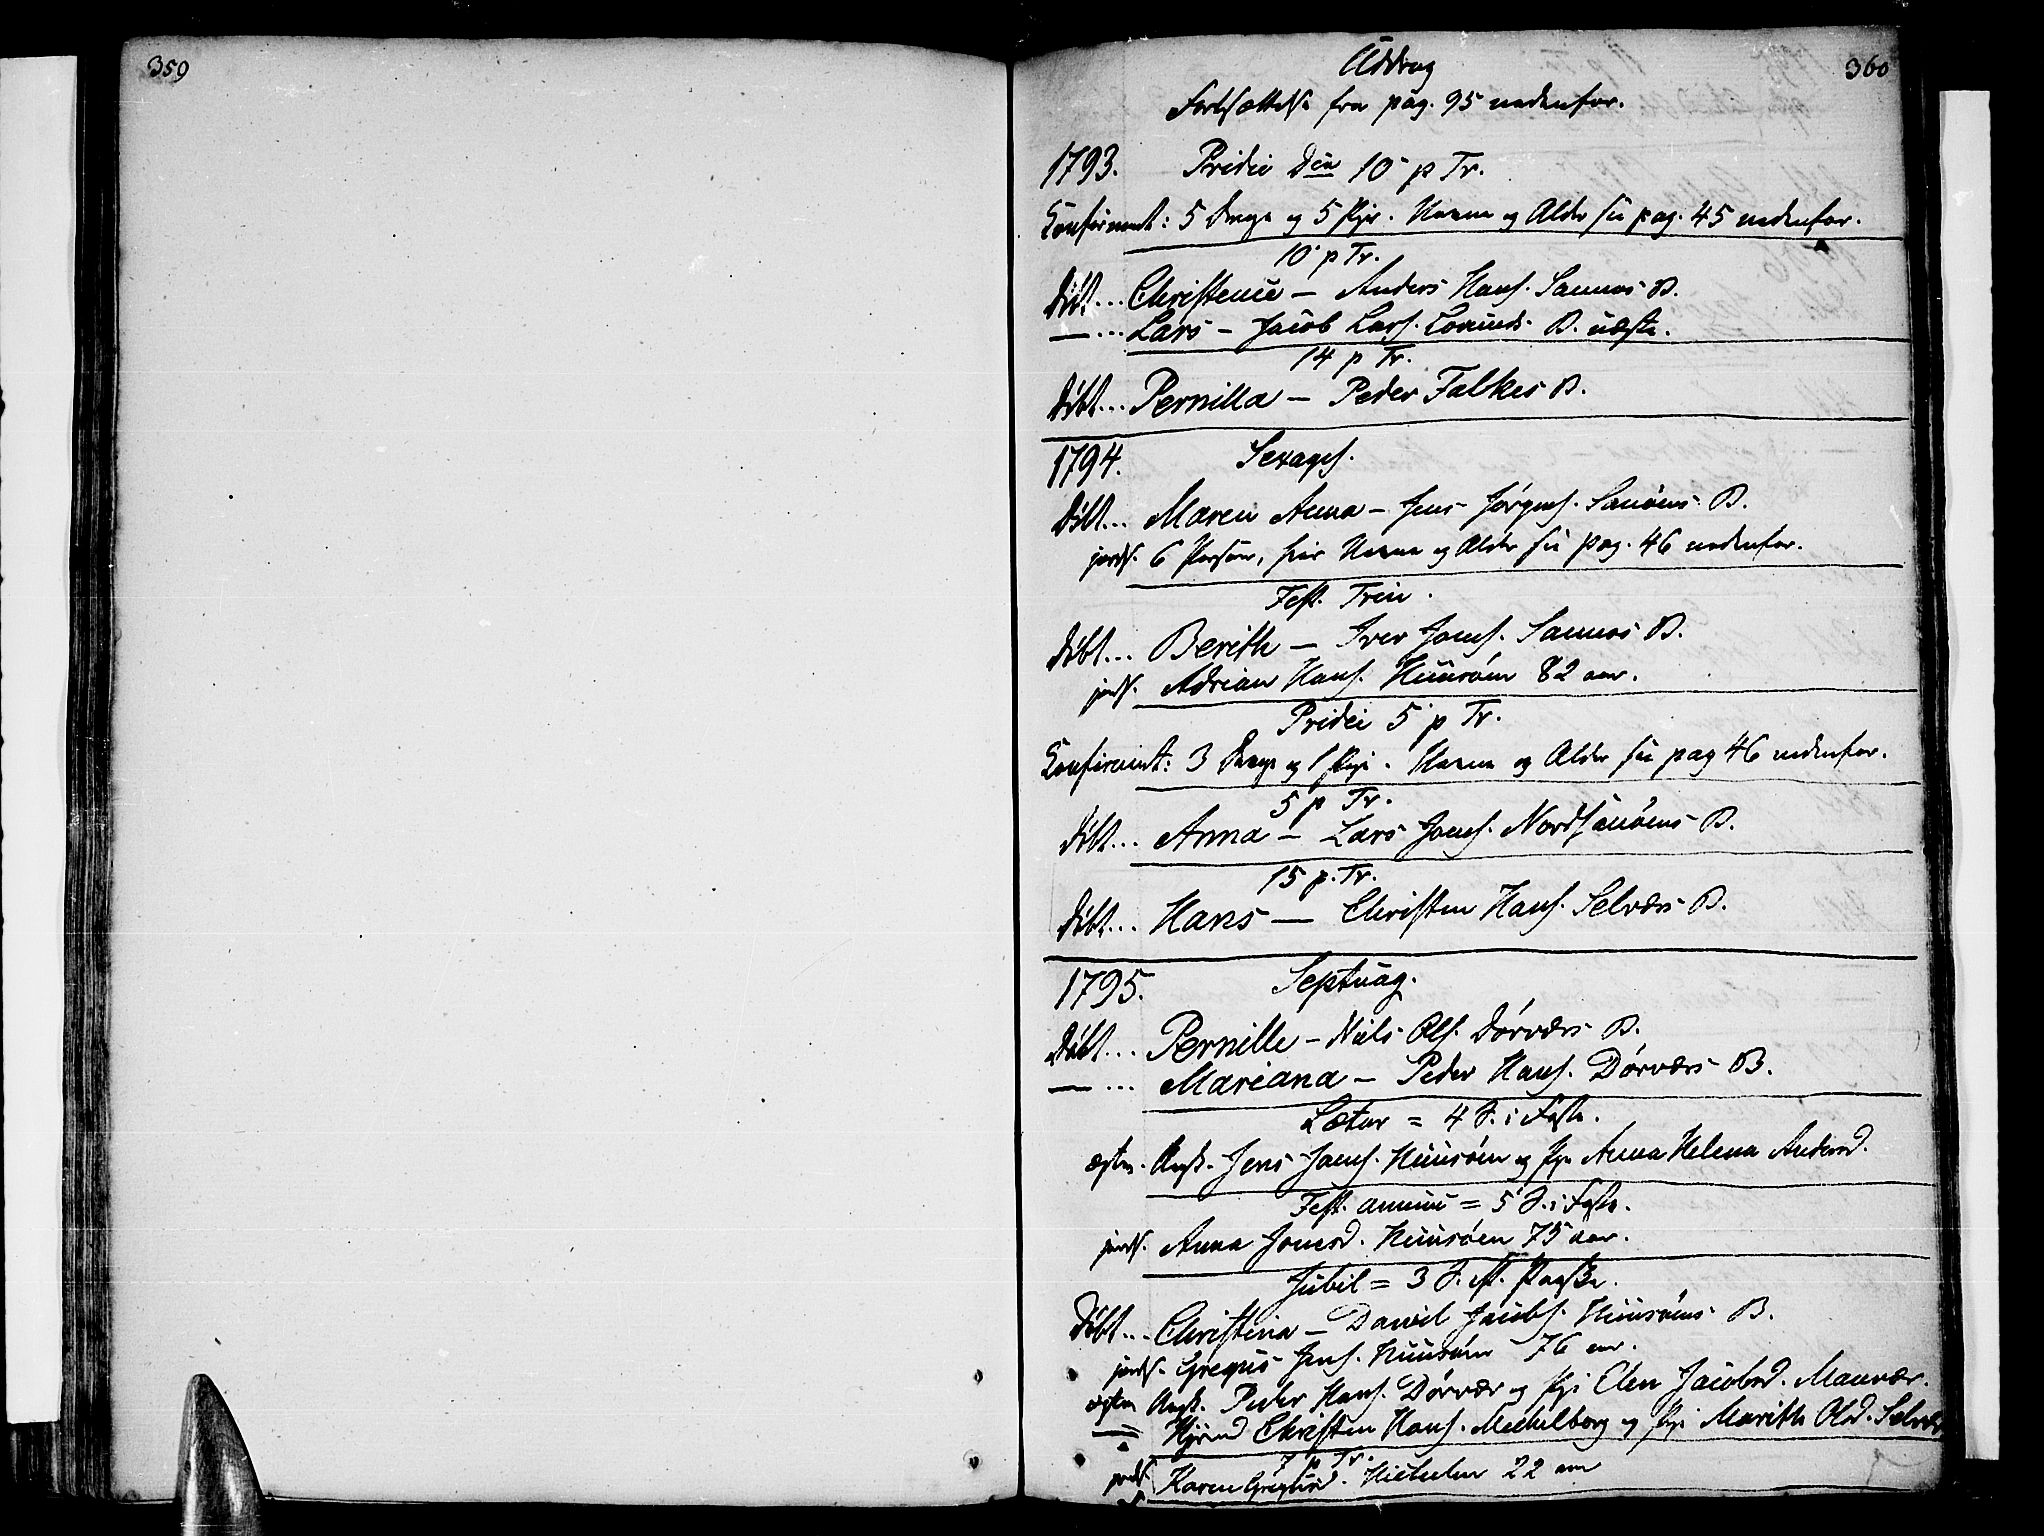 359
360
Uddrag
Fortsættelse fra pag. 95 nedenfor.
1793. Pridie Den 10 p Tr.
Confirmert: 5 Drenge og 5 Piger. Navne og Alder see pag. 45 nedenfor.
10 p Tr.
Døbt... Christence – Anders Hans. Sannæs B.
— ... Lars – Jacob Lars. Lovunds B. uægte.
14 p Tr.
Døbt... Pernilla – Peder Falkes B.
1794. Sexages.
Døbt... Maren Anna – Jens Jørgens. Sanøens B.
jords. 6 Personer, hvis Navne og Alder see pag. 46 nedenfor.
Fest. Trin.
Døbt... Berith – Iver Jons. Sannæs B.
jords. Adrian Hans. Huusøen 82 aar.
Pridei 5 p Tr.
Confirmert: 3 Drenge og 1 Pige. Navne og Alder see pag 46 nedenfor.
5 p Tr.
Døbt... Anna – Lars Jons. Nordsanøens B.
15 p. Tr.
Døbt... Hans — Christen Hans. Selværs B.
1795. Septuag.
Døbt... Pernille – Niels Ols. Dørværs B.
— ... Mariana – Peder Hans. Dørværs B.
Lætar = 4 S. i Faste.
ægtev. Ungk. Jens Jans. Huusøen og Pige Anna Helena Andersd.
Fest. annunc = 5 S. i Faste.
jords. Anna Jonesd. Huusøen 75 aar.
Jubil = 3 S. eft. Paaske.
Døbt... Christina – Daniel Jacobs. Huusøens B.
jords. Gregus Jens. Huusøen 76 aar.
ægtev Ungk. Peder Hans. Dørvær og Pige Elen Jacobsd. Maanvær.
Christen Hans. Mechelborg og Pige Marith Olsd. Selvær
7 p Tr.
jords Karen Gregusd. 22 aar